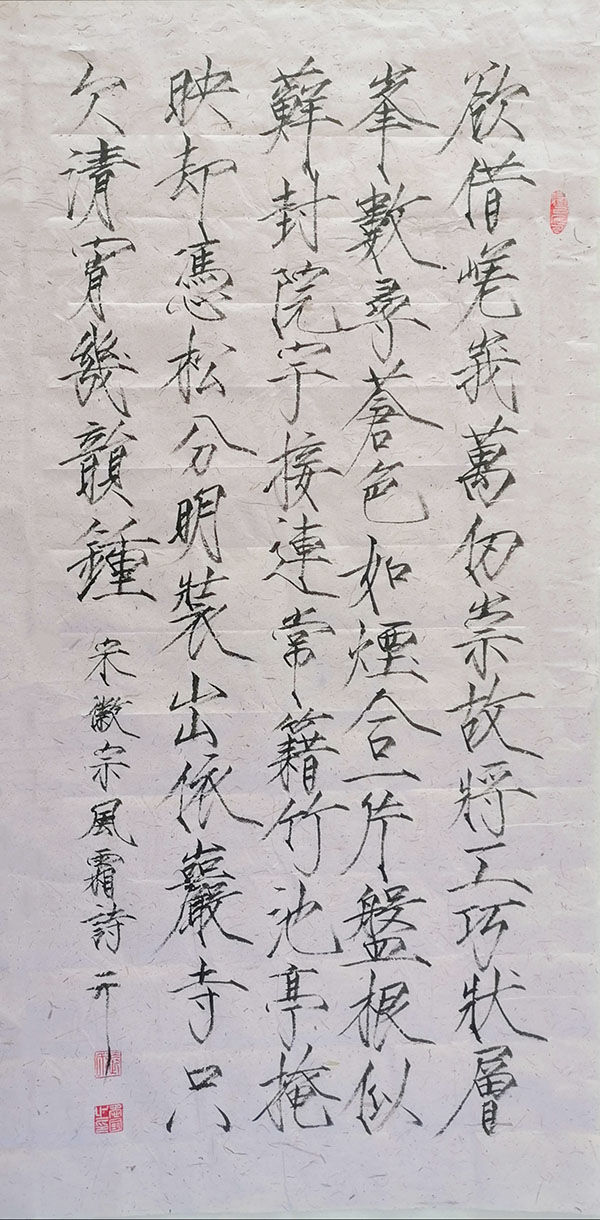 欲借嵯峩萬仞崇故將工巧狀層
峯數尋蒼色如煙合一片盤根似
蘚封院宇接連常籍竹池亭掩
映却憑松分明裝出依巖寺只
欠清宵幾韻鍾
宋徽宗風霜詩